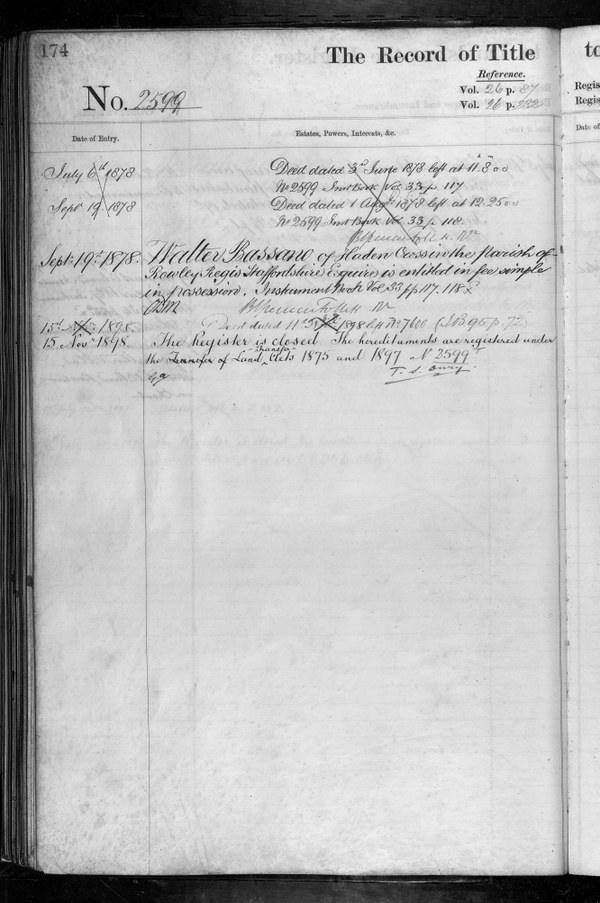 174
The Record of Title
Reference.
Vol. 26 p. 87
Vol. 26 p. 232
No. 2599
Date of Entry.
Estates, Powers, Interests, &c.
July 6th 1878 Deed dated 3rd June 1878 left at 11.8
No 2599 Inst Book Vol 33 p 117
Sept 19 1878 Deed dated 1 Augt 1878 left at 12.25
No 2599 Inst Book Vol 33 p 118
Sept. 19th 1878. Walter Bassano of Haden Cross in the parish of
Rowley Regis Staffordshire Esquire is entitled in fee simple
in possession. Instrument Book Vol 33 pp 117. 118
15th 1898 Deed dated 11th 1898 No 7600 (I B 95 p 72)
15 Novr 1898 The Register is closed The hereditaments are registered under
the Transfer of Land Transfer Acts 1875 and 1897 No 2599
to
Regis
Regis
Date of